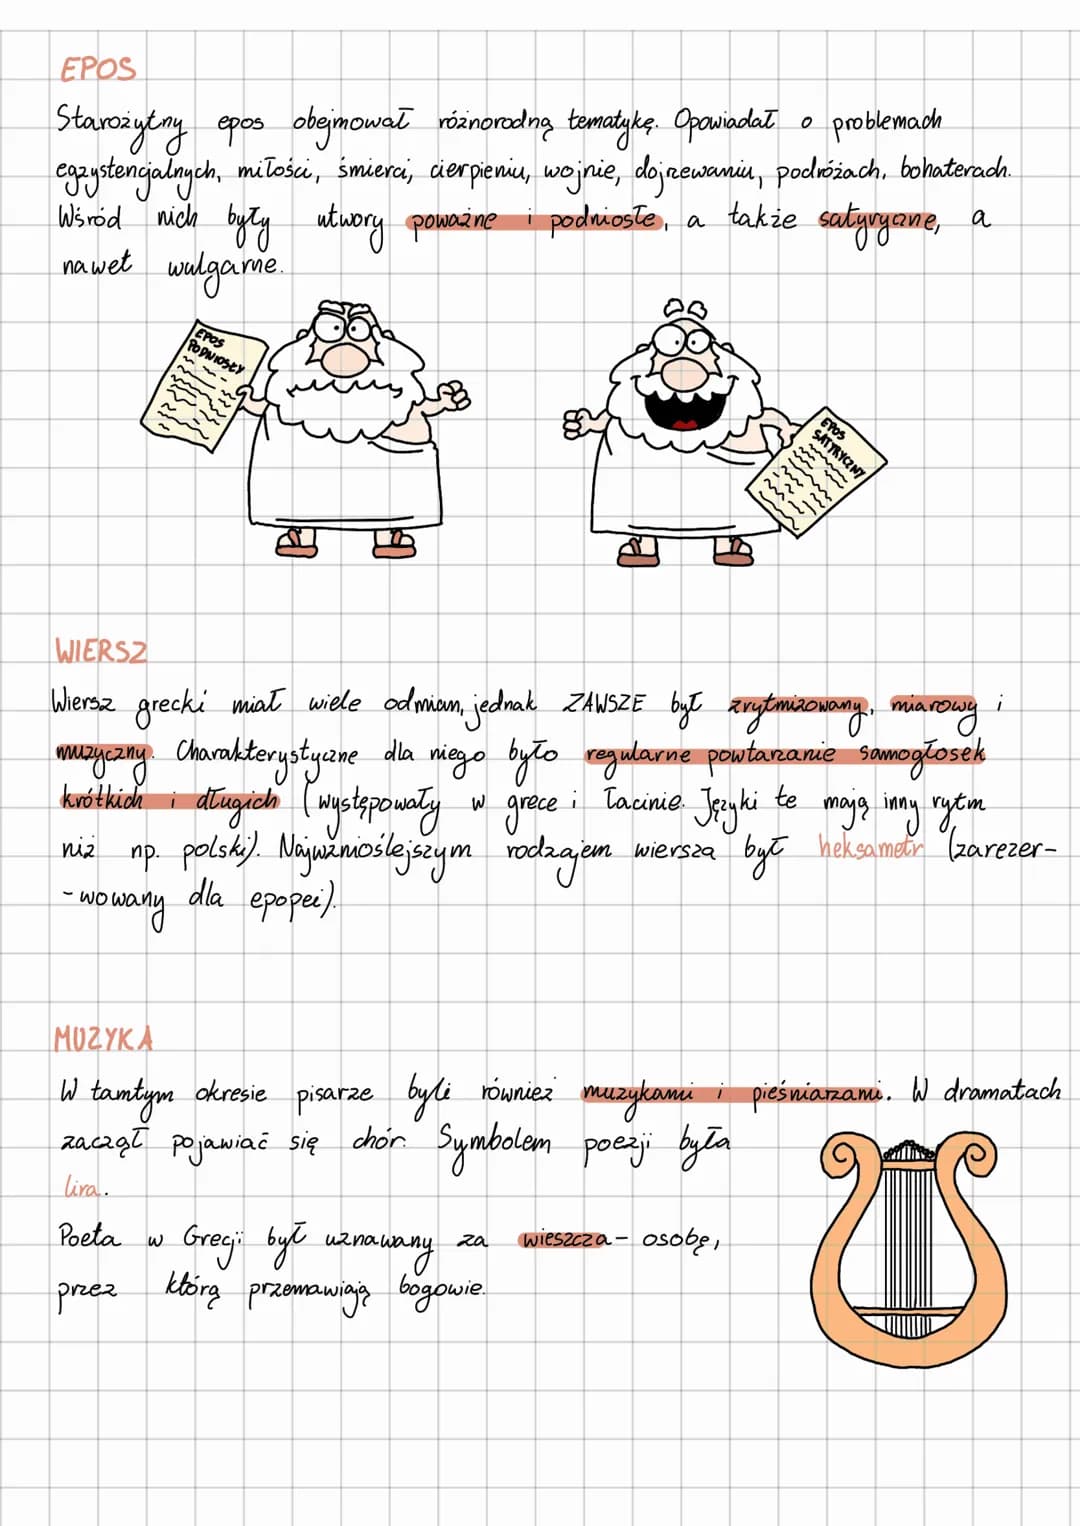 EPOS
Starożytny epos obejmował różnorodną tematykę. Opowiadał o problemach
egzystencjalnych, miłości, śmierci, cierpieniu, wojnie, dojrzewaniu, podróżach, bohaterach.
Wśród nich były utwory poważne i podniosłe, a także satyryczne, a
nawet wulgarne.
EPOS
PODNIOSŁY
EPOS
SATYRYCZNY
WIERSZ
Wiersz grecki miał wiele odmian, jednak ZAWSZE był zrytmizowany, miarowy i
muzyczny. Charakterystyczne dla niego było regularne powtarzanie samogłosek
krótkich i długich (występowały w grece i łacinie. Języki te mają inny rytm
niż np. polski). Najwznioślejszym rodzajem wiersza był heksametr (zarezer-
-wowany dla epopei).
MUZYKA
W tamtym okresie pisarze byli również muzykami i pieśniarzami. W dramatach
zaczął pojawiać się chór. Symbolem poezji była
lira.
Poeta w Grecji był uznawany za wieszcza - osobę,
przez którą przemawiają bogowie.